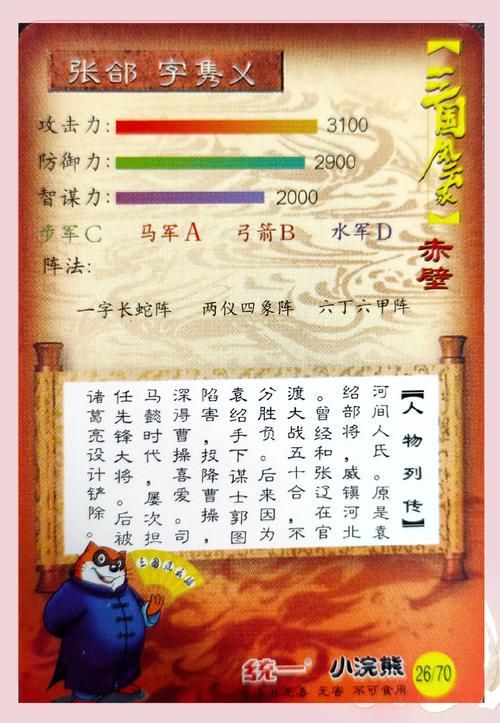 张郃 字隽乂
攻击力: 3100
防御力: 2900
智谋力: 2000
步军C 马军A 弓箭B 水军D
阵法:
一字长蛇阵 两仪四象阵 六丁六甲阵
【三国风云
】
赤壁
【人物列传】
河间人氏。原是袁
绍部将,威镇河北
。曾经和张辽在官
渡大战五十合,不
分胜负。后来因为
袁绍手下谋士郭图
陷害,投降曹操,
深得曹操喜爱。司
马懿时代,屡次担
任先锋大将。后被
诸葛亮设计铲除。
三国风云
统一® 小浣熊
无毒 无害 不可食用
26/70